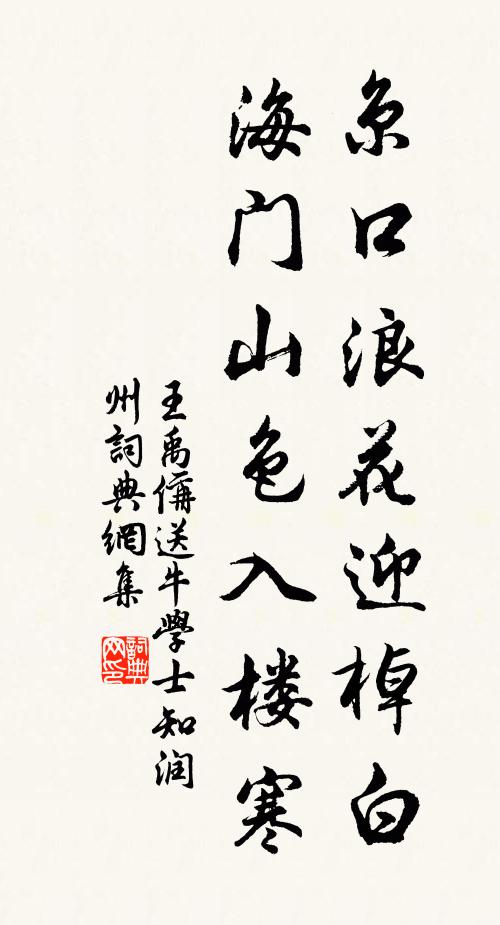 京口浪花迎棹白
海门山色入楼寒
王禹偁送牛學士知润
州詞典網集
詞典网印